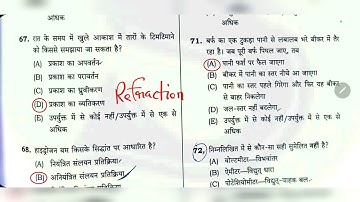 आंधिक
67. रात के समय में खुले आकाश में तारों के टिमटिमाने
को किससे समझाया जा सकता है?
(A) प्रकाश का अपवर्तन
(B) प्रकाश का परावर्तन
(C) प्रकाश का ध्रुवीकरण
(D) प्रकाश का व्यतिकरण
(E) उपर्युक्त में से कोई नहीं/उपर्युक्त में से एक से
अधिक
Refraction
68. हाइड्रोजन बम किसके सिद्धांत पर आधारित है?
(A) नियंत्रित संलयन प्रतिक्रिया
(B) अनियंत्रित संलयन प्रतिक्रिया
अधिक
71. बर्फ का एक टुकड़ा पानी से लबालब भरे बीकर में तैर
रहा है। जब पूरी बर्फ पिघल जाए, तब
(A) पानी फर्श पर फैल जाएगा
(B) बीकर में पानी का स्तर नीचे आ जाएगा
(C) पानी का स्तर पहले गिरेगा और फिर वह बीकर
से बाहर निकलेगा
(D) जल-स्तर नहीं बदलेगा
(E) उपर्युक्त में से कोई नहीं/उपर्युक्त में से एक से
अधिक
72. निम्नलिखित में से कौन-सा सही सुमेलित नहीं है?
(A) वोल्टमीटर—विभवांतर
(B) ऐमीटर—विद्युत् धारा
(C) पोटेंशियोमीटर—विद्युत्-वाहक बल